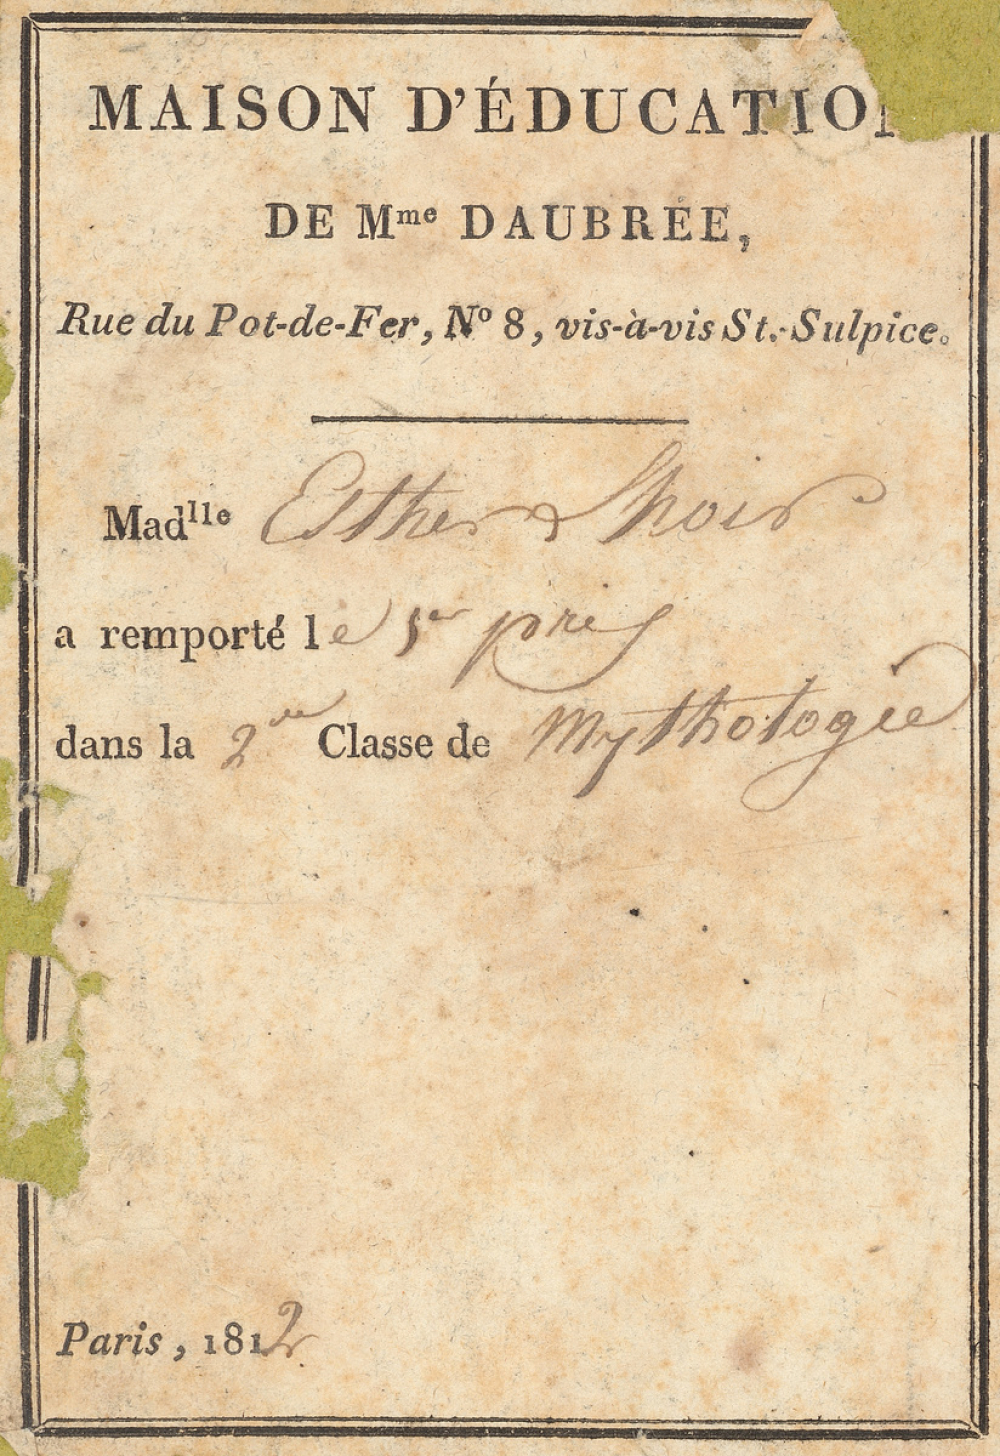 MAISON D'ÉDUCATION
DE Mme DAUBRÉE,
Rue du Pot-de-Fer, No 8, vis-à-vis St.-Sulpice.
Madlle Esther
a remporté le 1er prix
dans la 2de Classe de Mythologie
Paris, 1812